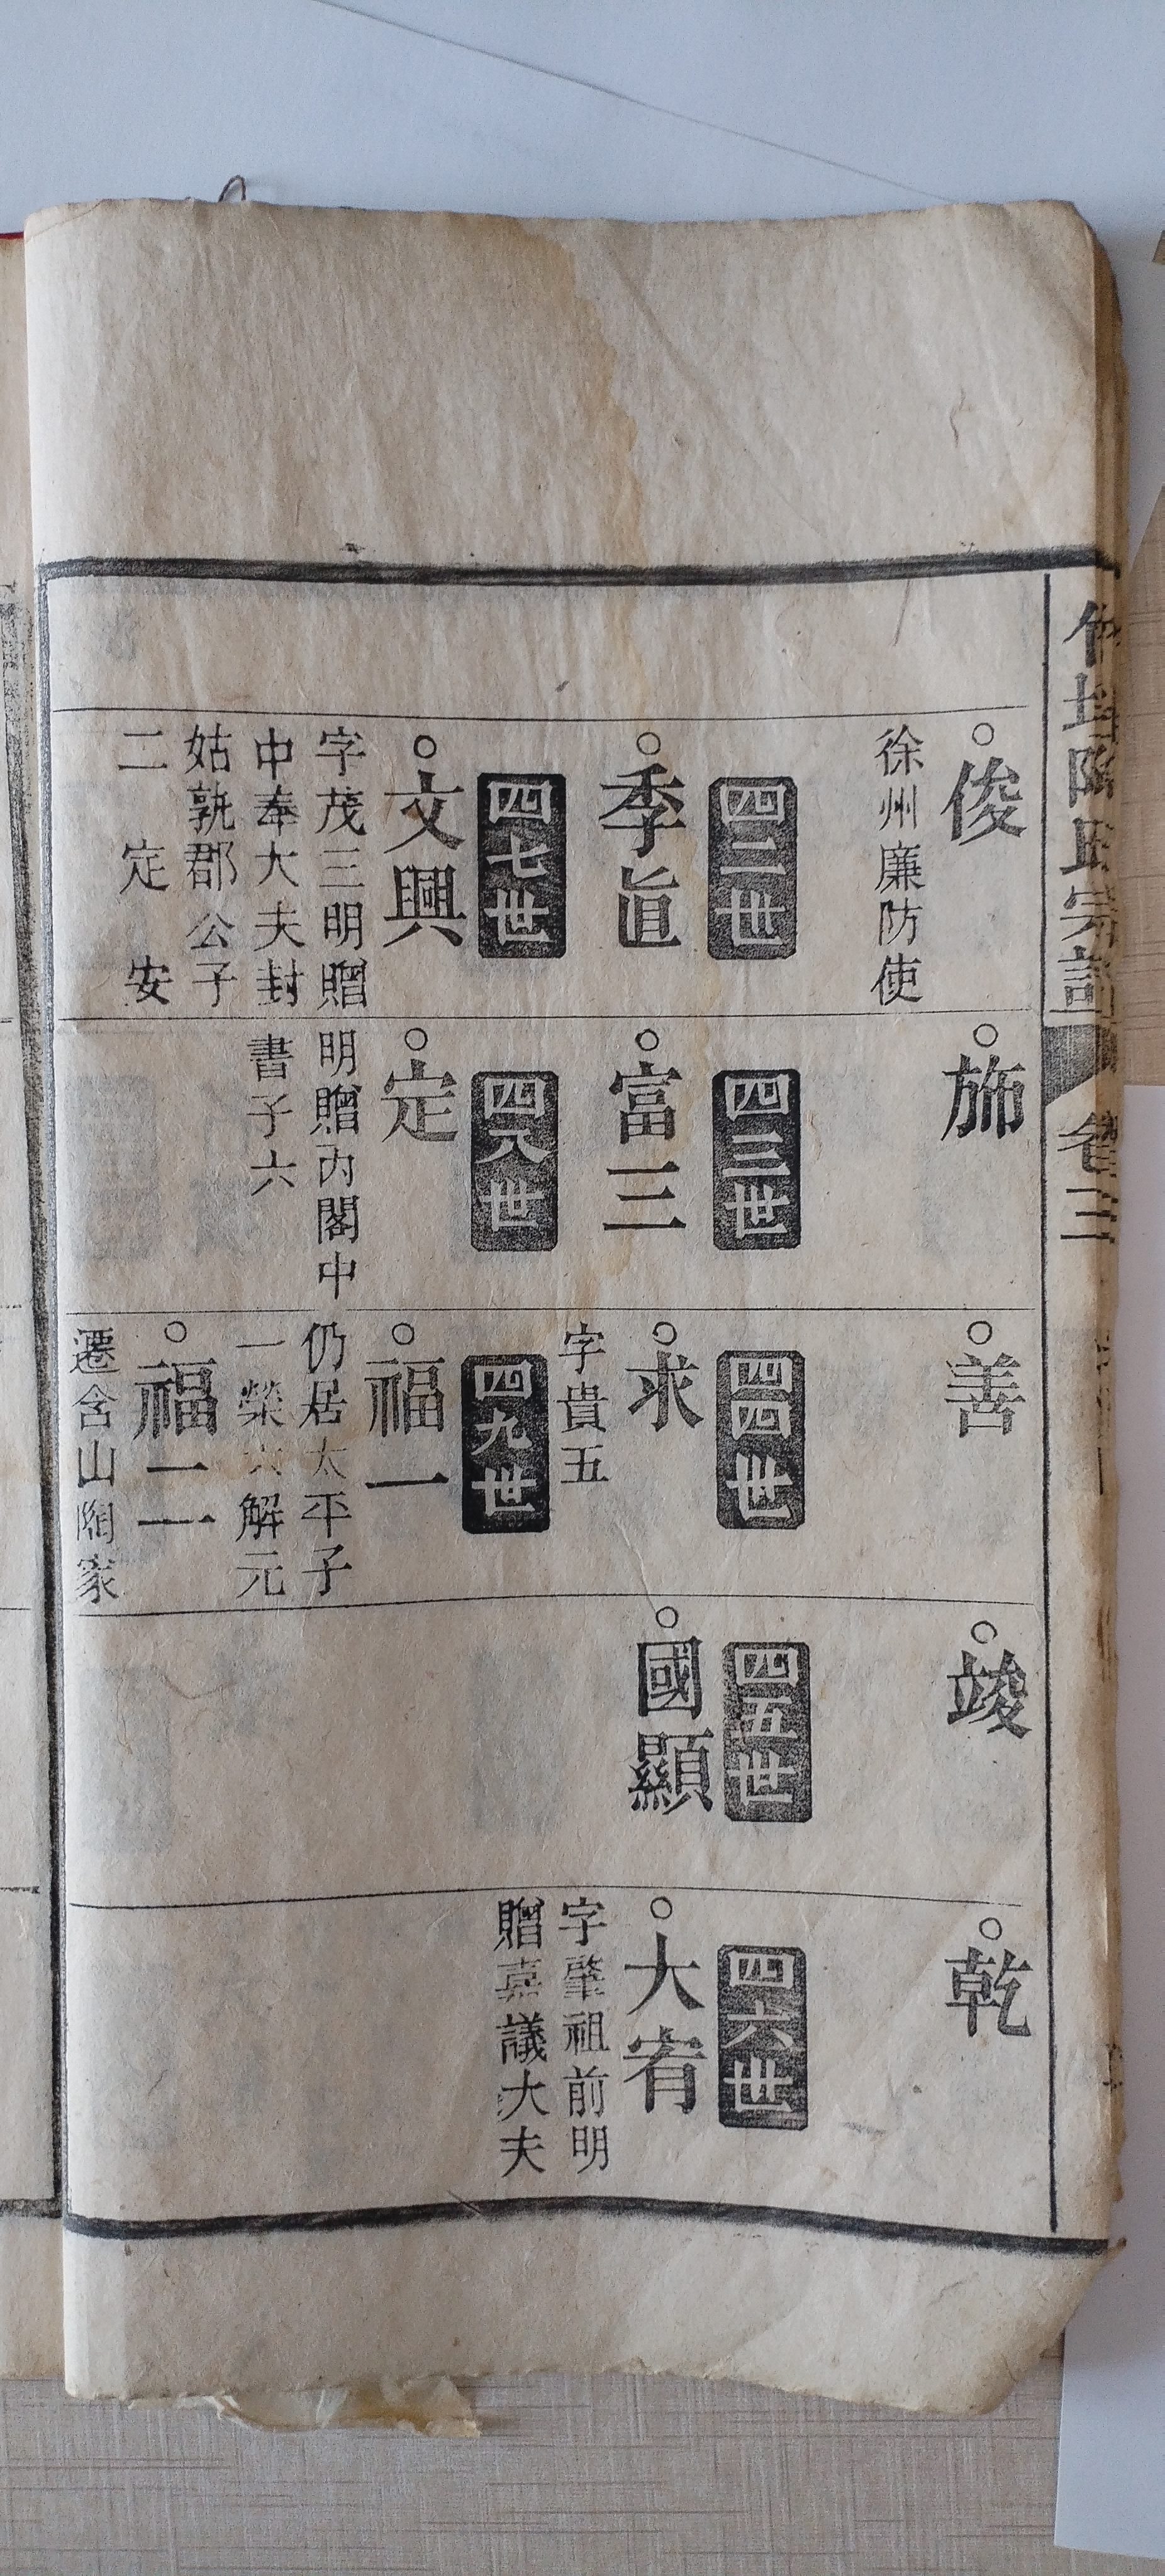 陶氏宗譜
卷三
俊
徐州廉防使
施
善
竣
乾
四二世
季眞
四三世
富三
四四世
求
字貴五
四五世
國顯
四六世
大宥
字肇祖前明
贈嘉議大夫
四七世
文興
字茂三明贈
中奉大夫封
姑孰郡公子
二定安
四八世
定
明贈內閣中
書子六
四九世
福一
仍居太平子
一榮六解元
福二
遷含山陶家